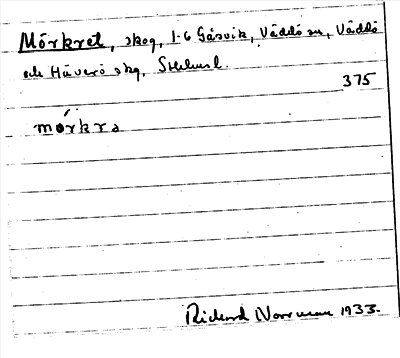 Mörkret, skog, 1-6 Gåsvik, Väddö sn, Väddö
och Häverö skg, Sthlms l.
375
mórkra
Richard Norrman 1933.